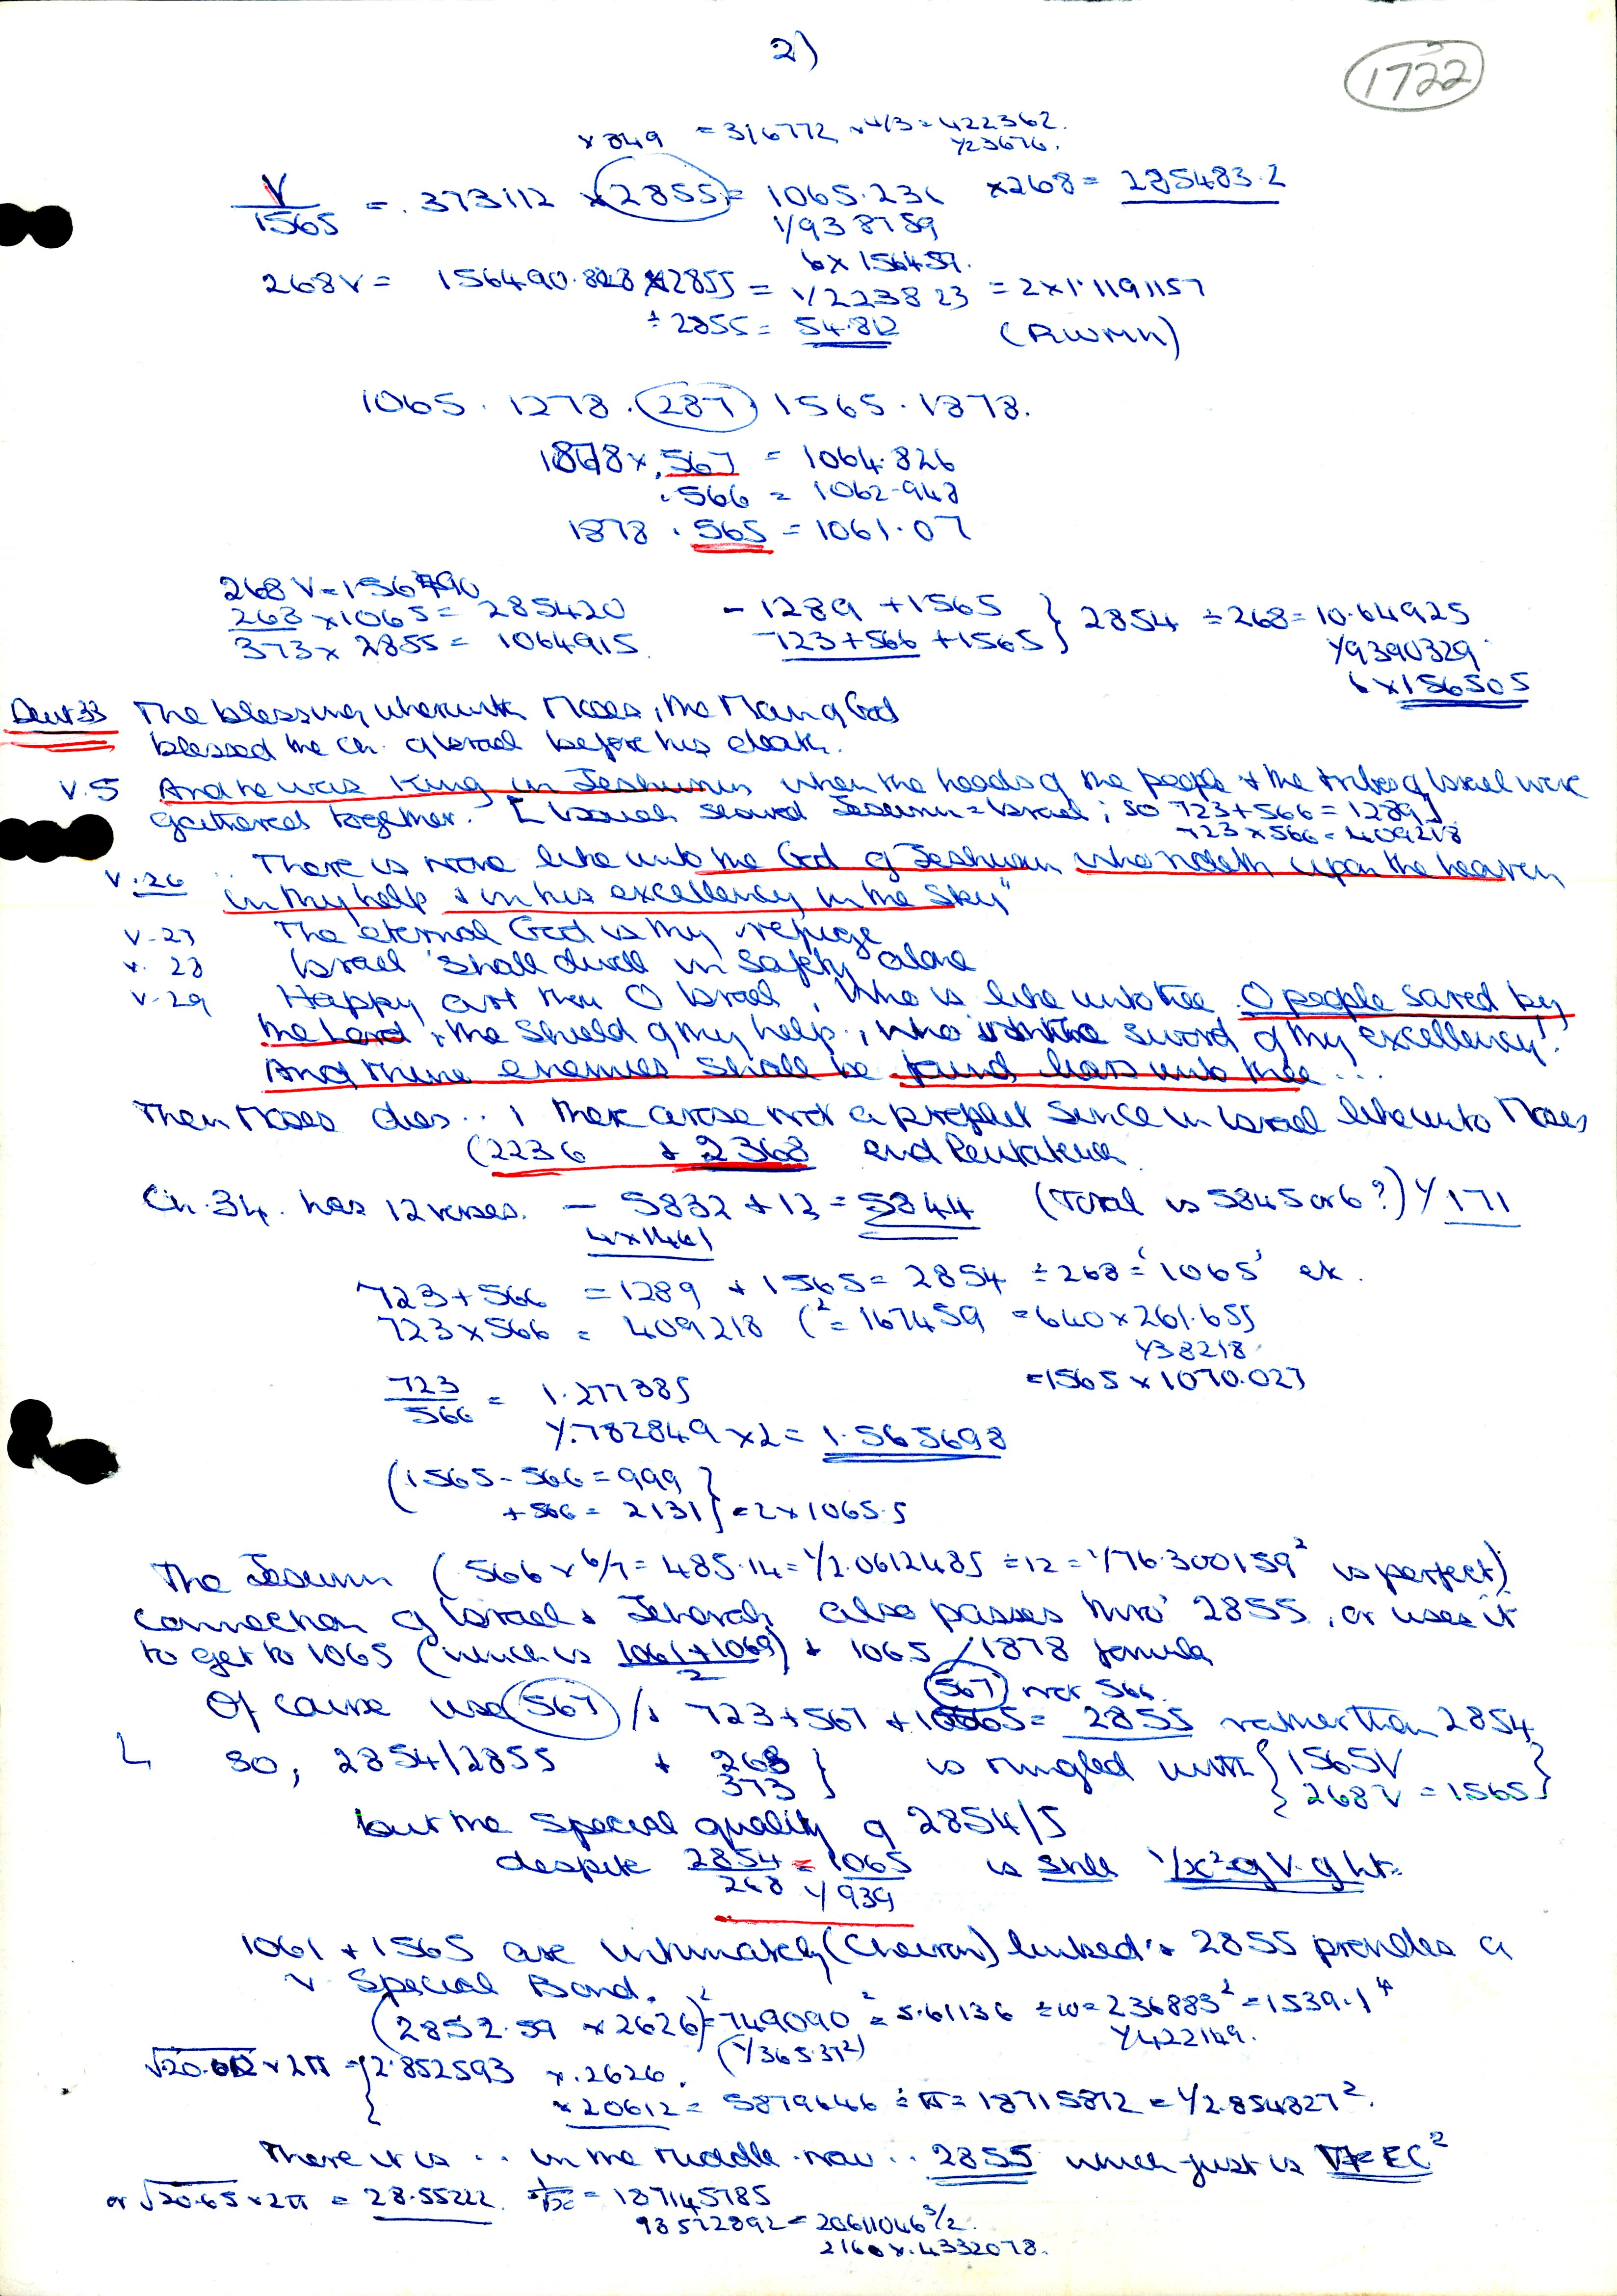 2)
1722
x 849 = 316772 x 4/3 = 422362.
1/23676.
V/1565 = .373112 x 2855 = 1065.236 x268 = 285483.2
1/938759
6 x 156459.
268V = 156490.828 x 2855 = 1/223823 = 2x1.1191157
÷ 2855 = 54.812 (RWMH)
1065 . 1278 . 287 1565 . 1878.
1878 x .567 = 1064.826
.566 = 1062.948
1878 . 565 = 1061.07
268 V = 156490
268 x 1065 = 285420 - 1289 + 1565 } 2854 ÷ 268 = 10.64925
373 x 2855 = 1064915. 723 + 566 + 1565 1/9390329
6 x 156505
Deut 33 The blessing wherewith Moses, the Man of God
blessed the Ch. of Israel before his death.
V.5 And he was King in Jeshurun when the heads of the people & the tribes of Israel were
gathered together. [ Isaiah showed Jesurun = Israel ; so 723 + 566 = 1289]
723 x 566 = 409218
V.26 There is none like unto the God of Jeshurun who rideth upon the heaven
in thy help & in his excellency in the Sky"
V.27 The eternal God is thy refuge
v. 28 Israel shall dwell in safety alone
V.29 Happy art thou O Israel, Who is like unto thee O people saved by
the Lord, the Shield of thy help, who is the sword of thy excellency!
And thine enemies shall be found liars unto thee...
Then Moses dies .. & there arose not a prophet since in Israel like unto Moses
(2236 & 2368 end Pentateuch
Ch. 34. has 12 verses. - 5832 + 12 = 5844 (Total is 5845 or 6?) 1/171
4x1461
723 + 566 = 1289 + 1565 = 2854 ÷ 268 = '1065' etc.
723 x 566 = 409218 (² = 167459 = 640 x 261.655
1/38218
= 1565 x 1070.027
723/566 = 1.277385
1/.782849 x 2 = 1.565698
(1565 - 566 = 999 }
+ 566 = 2131 } = 2 x 1065.5
The Jesurun (566 x 6/7 = 485.14 = 1/2.0612485 ÷ 12 = 1/76.300159² is perfect)
connection of Israel & Jehovah also passes thro' 2855, or uses it
to get to 1065 (which is (1061 + 1069)/2) & 1065 / 1878 formula
567 not 566.
Of course use 567 / & 723 + 567 + 1565 = 2855 rather than 2854
So, 2854/2855 + 268 373 } is mingled with { 1565V
268V = 1565 }
but the Special quality of 2854/5
despite 2854/268 = 1065 1/939 is still 1/x² of V. of ht.
1061 + 1565 are intimately linked & 2855 provides a
v Special Bond.
(2852.59 x 2626)² = 749090² = 5.61136 ÷ 10 = 236883² = 1539.1⁴
(1/365.37²) 1/422149.
√20.612 x 2π = { 2.852593 x .2626.
x 20612 = 5879646 ÷ π = 18715872 = 1/2.854827².
There it is .. in the middle now .. 2855 which just is EC²
or √20.65 x 2π = 28.55222. = 187145785
93572892 = 20611046 3/2.
2160 x .4332078.